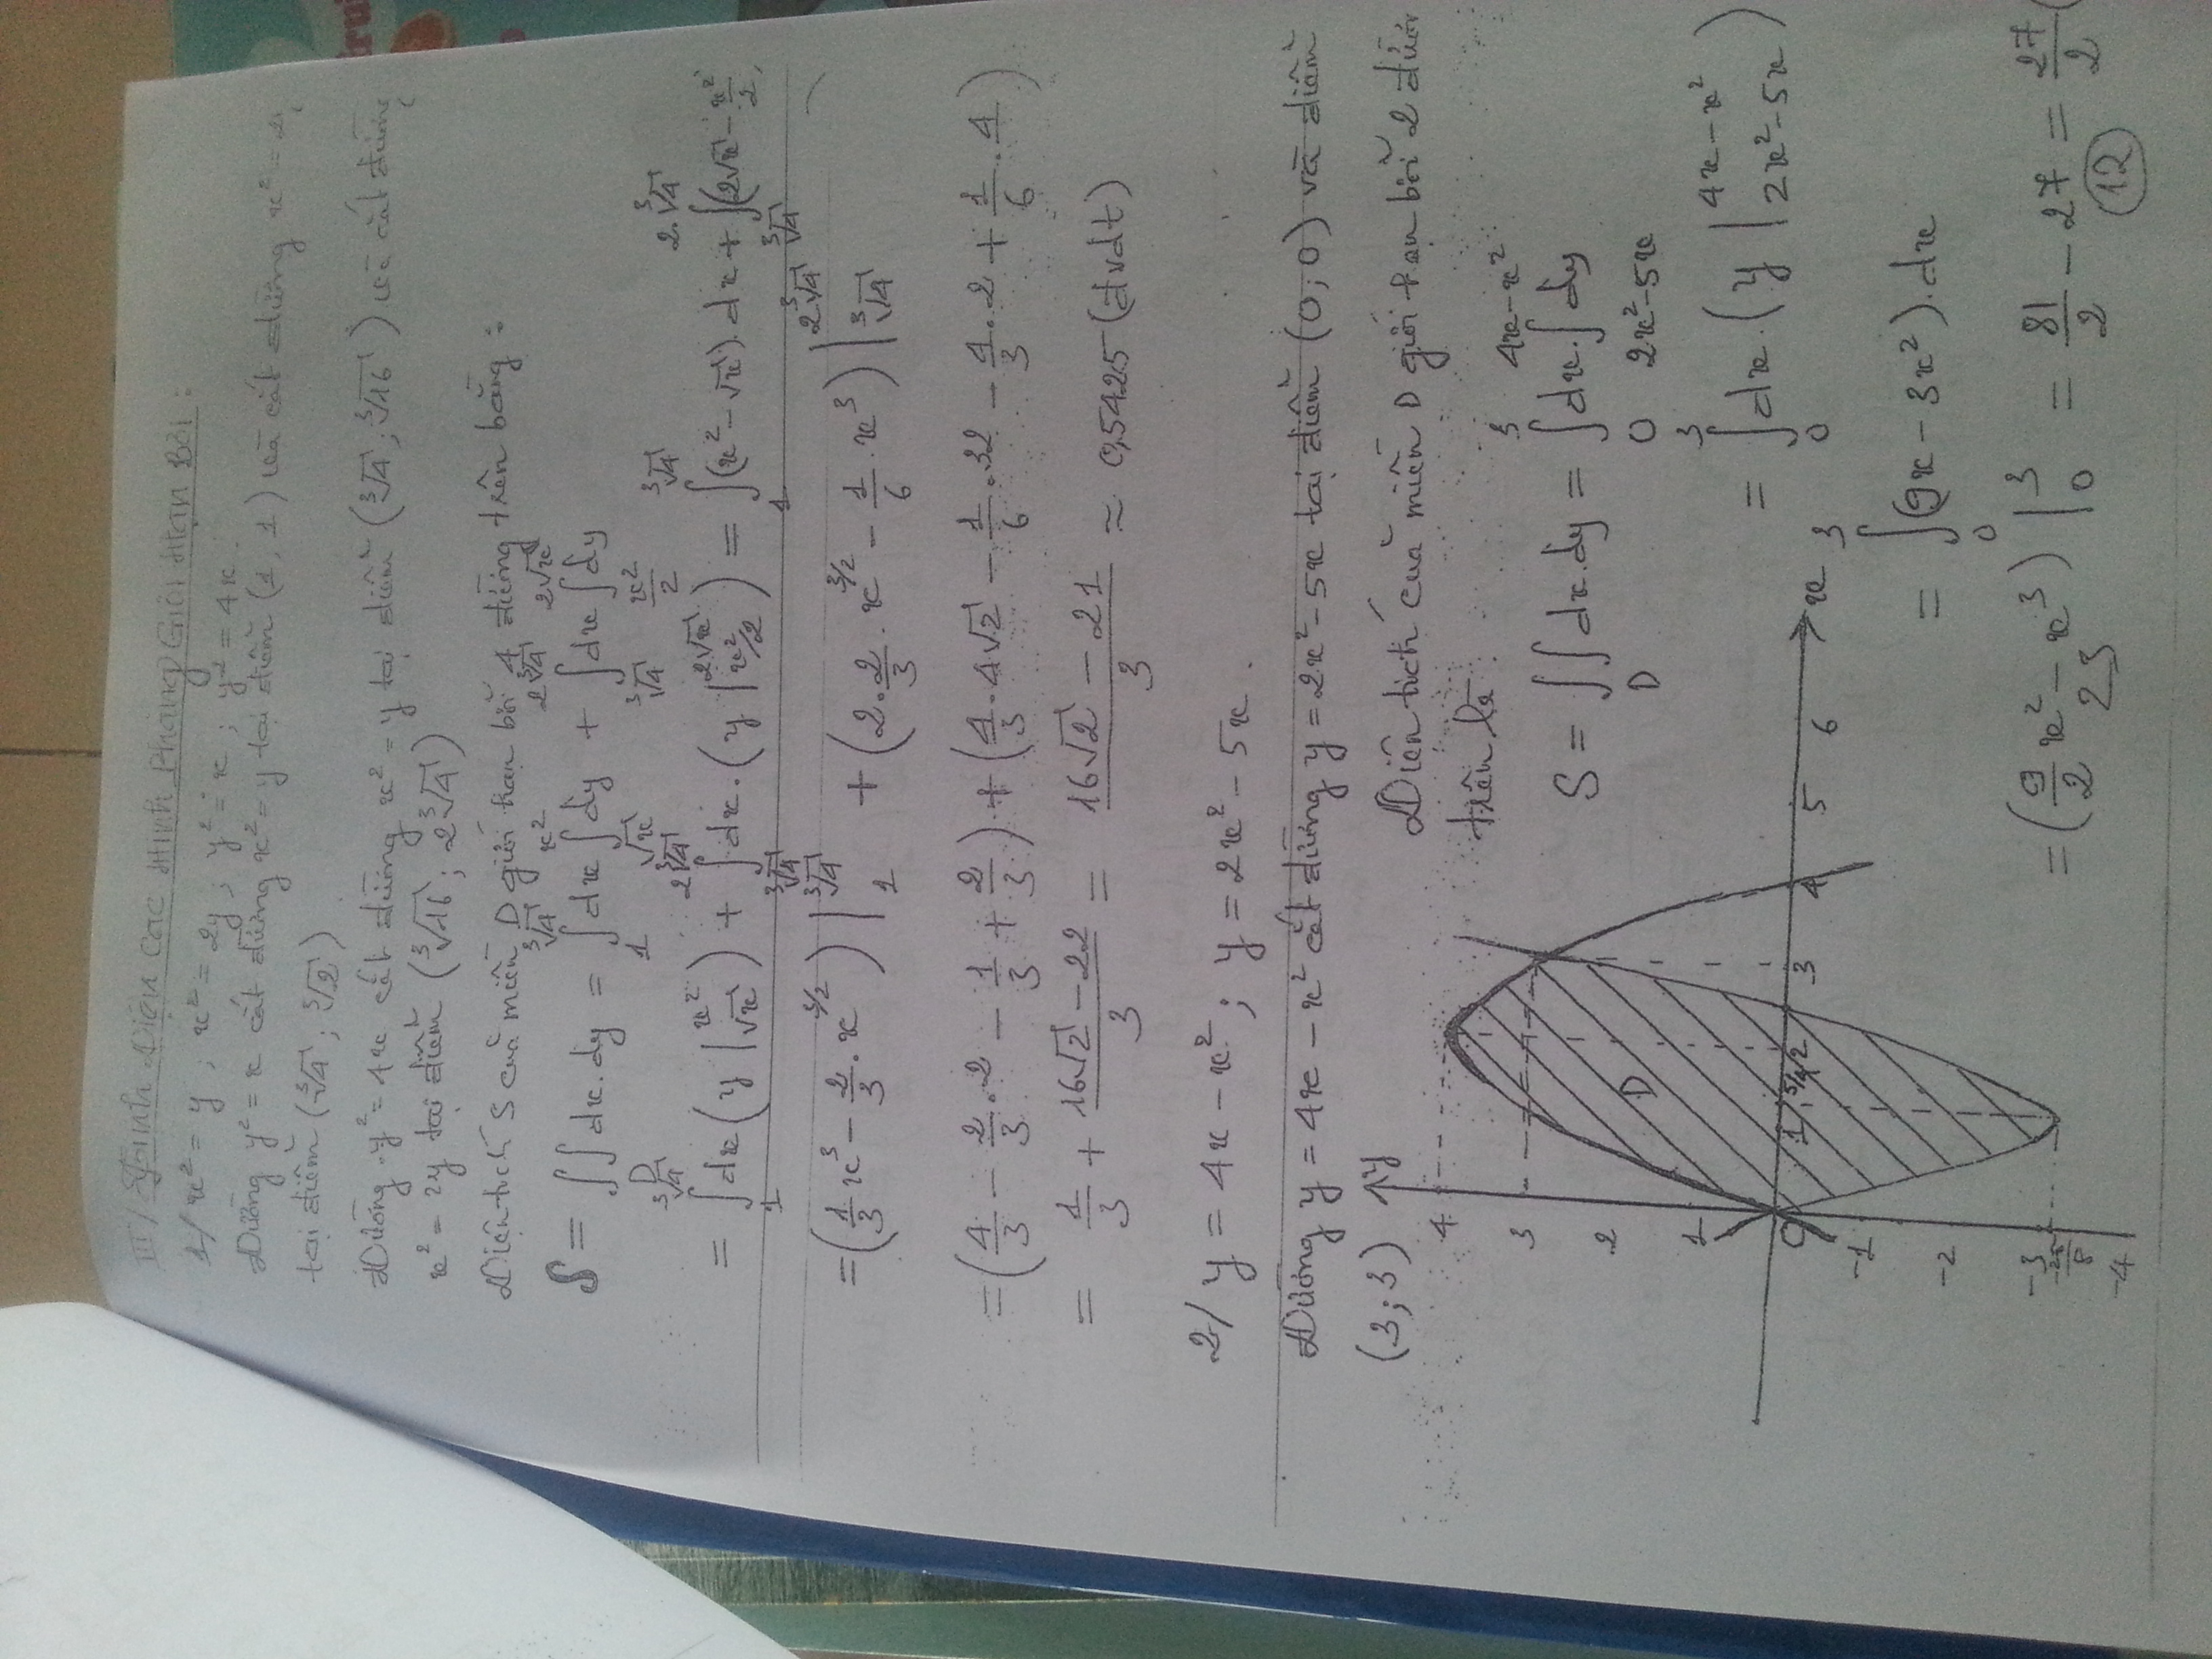 III/ Tính Diện Các Hình Phẳng Giới Hạn Bởi :
1/ x² = y ; x² = 2y ; y² = x ; y² = 4x .
Đường y² = x cắt đường x² = y tại điểm (1, 1) và cắt đường x² = 2y
tại điểm (∛4 ; ∛2)
Đường y² = 4x cắt đường x² = y tại điểm (∛4 ; ∛16) và cắt đường
x² = 2y tại điểm (∛16 ; 2∛4)
Diện tích S của miền D giới hạn bởi 4 đường trên bằng :
S = ∫∫_D dx.dy = ∫_1^{∛4} dx ∫_{√x}^{x²} dy + ∫_{∛4}^{2∛4} dx ∫_{x²/2}^{2√x} dy
= ∫_1^{∛4} dx (y |_{√x}^{x²}) + ∫_{∛4}^{2∛4} dx . (y |_{x²/2}^{2√x}) = ∫_1^{∛4} (x² - √x) . dx + ∫_{∛4}^{2.∛4} (2√x - x²/2
= (1/3 x³ - 2/3 . x^{3/2}) |_1^{∛4} + (2 . 2/3 . x^{3/2} - 1/6 . x³) |_{∛4}^{2∛4}
= (4/3 - 2/3 . 2 - 1/3 + 2/3) + (4/3 . 4√2 - 1/6 . 32 - 4/3 . 2 + 1/6 . 4)
= 1/3 + (16√2 - 22)/3 = (16√2 - 21)/3 ≈ 0,5425 (đvdt)
2/ y = 4x - x² ; y = 2x² - 5x .
Đường y = 4x - x² cắt đường y = 2x² - 5x tại điểm (0 ; 0) và điểm
(3 ; 3)
y
4
3
2
1
O
-1
-2
-3
-25/8
-4
D
1 5/4 2 3 4 5 6 x
Diện tích của miền D giới hạn bởi 2 đườn
trên là :
S = ∫∫_D dx.dy = ∫_0^3 dx . ∫_{2x²-5x}^{4x-x²} dy
= ∫_0^3 dx . (y |_{2x²-5x}^{4x-x²})
= ∫_0^3 (9x - 3x²) . dx
= (9/2 x² - x³) |_0^3 = 81/2 - 27 = 27/2 (
23
12